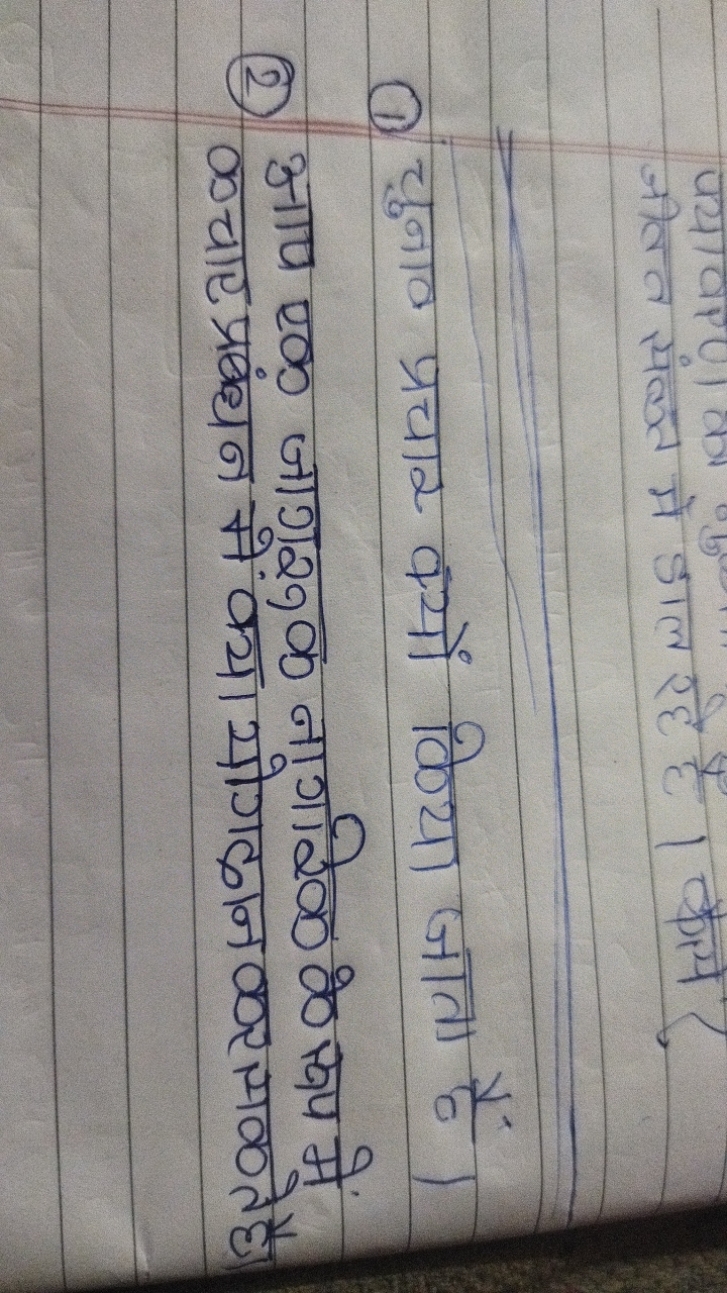 जीवन संकट में डाल रहे हैं। कैसे
① चुनाव प्रचार क्यों किया जाता हैं।
② आप एक जागरुक नागरिक के रूप में
कचारप्रबंधन में क्या योगदान कर सकते हैं।